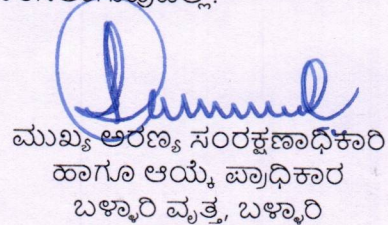 ಮುಖ್ಯ ಅರಣ್ಯ ಸಂರಕ್ಷಣಾಧಿಕಾರಿ
ಹಾಗೂ ಆಯ್ಕೆ ಪ್ರಾಧಿಕಾರ
ಬಳ್ಳಾರಿ ವೃತ್ತ, ಬಳ್ಳಾರಿ